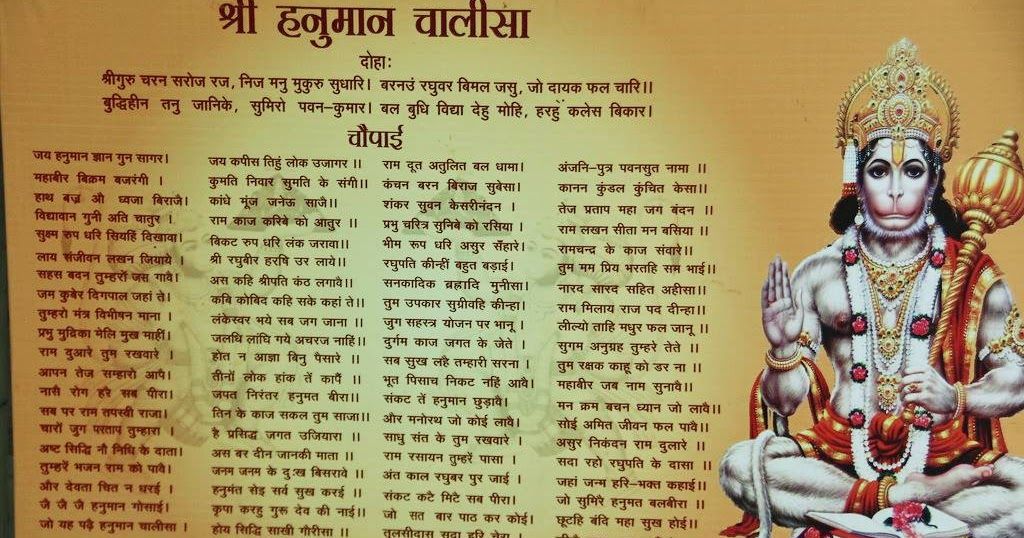 श्री हनुमान चालीसा
दोहाः
श्रीगुरु चरन सरोज रज, निज मनु मुकुरु सुधारि। बरनउं रघुवर बिमल जसु, जो दायक फल चारि।।
बुद्धिहीन तनु जानिके, सुमिरो पवन–कुमार। बल बुधि विद्या देहु मोहि, हरहुं कलेस बिकार।
चौपाई
जय हनुमान ज्ञान गुन सागर। जय कपीस तिहुं लोक उजागर ।। राम दूत अतुलित बल धामा। अंजनि–पुत्र पवनसुत नामा ।।
महाबीर बिक्रम बजरंगी । कुमति निवार सुमति के संगी।। कंचन बरन बिराज सुबेसा। कानन कुंडल कुंचित केसा।।
हाथ बज्र औ ध्वजा बिराजै। कांधे मूंज जनेऊ साजै।। शंकर सुवन केसरीनंदन । तेज प्रताप महा जग बंदन ।।
विद्यावान गुनी अति चातुर । राम काज करिबे को आतुर ।। प्रभु चरित्र सुनिबे को रसिया । राम लखन सीता मन बसिया ।।
सुक्ष्म रुप धरि सियहिं दिखावा। बिकट रुप धरि लंक जरावा।। भीम रूप धरि असुर सँहारे। रामचन्द्र के काज संवारे।।
लाय संजीवन लखन जियाये । श्री रघुबीर हरषि उर लाये।। रघुपति कीन्हीं बहुत बड़ाई। तुम मम प्रिय भरतहि सम भाई।।
सहस बदन तुम्हरों जस गावै। अस कहि श्रीपति कंठ लगावै।। सनकादिक ब्रह्मादि मुनीसा। नारद सारद सहित अहीसा।।
जम कुबेर दिगपाल जहां ते। कबि कोबिद कहि सके कहां ते।। तुम उपकार सुग्रीवहि कीन्हा। राम मिलाय राज पद दीन्हा।।
तुम्हरो मंत्र विभीषन माना । लंकेस्वर भये सब जग जाना ।। जुग सहस्त्र योजन पर भानू । लील्यो ताहि मधुर फल जानू ।।
प्रभु मुद्रिका मेलि मुख माहीं। जलधि लांघि गये अचरज नाहिं।। दुर्गम काज जगत के जेते । सुगम अनुग्रह तुम्हरे तेते ।।
राम दुआरे तुम रखवारे । होत न आज्ञा बिनु पैसारे ।। सब सुख लहै तम्हारी सरना । तुम रक्षक काहू को डर ना ।।
आपन तेज सम्हारो आपै। तीनों लोक हांक तें कापैं ।। भूत पिसाच निकट नहिं आवै। महाबीर जब नाम सुनावै।।
नासै रोग हरे सब पीरा। जपत निरंतर हनुमत बीरा।। संकट तें हनुमान छुड़ावै। मन क्रम बचन ध्यान जो लावै।।
सब पर राम तपस्वी राजा। तिन के काज सकल तुम साजा।। और मनोरथ जो कोई लावै। सोई अमित जीवन फल पावै।।
चारों जुग परताप तुम्हारा । है प्रसिद्ध जगत उजियारा ।। साधु संत के तुम रखवारे । असुर निकंदन राम दुलारे ।।
अष्ट सिद्धि नौ निधि के दाता। अस बर दीन जानकी माता ।। राम रसायन तुम्हरें पासा । सदा रहो रघुपति के दासा ।।
तुम्हरें भजन राम को पावै। जनम जनम के दुःख बिसरावे ।। अंत काल रघुबर पुर जाई । जहां जन्म हरि–भक्त कहाई।।
और देवता चित न धरई । हनुमंत सेइ सर्व सुख करई ।। संकट कटै मिटे सब पीरा। जो सुमिरै हनुमत बलबीरा।
जै जै जै हनुमान गोसाई। कृपा करहु गुरू देव की नाई।। जो सत बार पाठ कर कोई। छूटहि बंदि महा सुख होई।।
जो यह पढ़ै हनुमान चालीसा । होय सिद्धि साखी गौरीसा ।। तुलसीदास सदा हरि चेरा ।